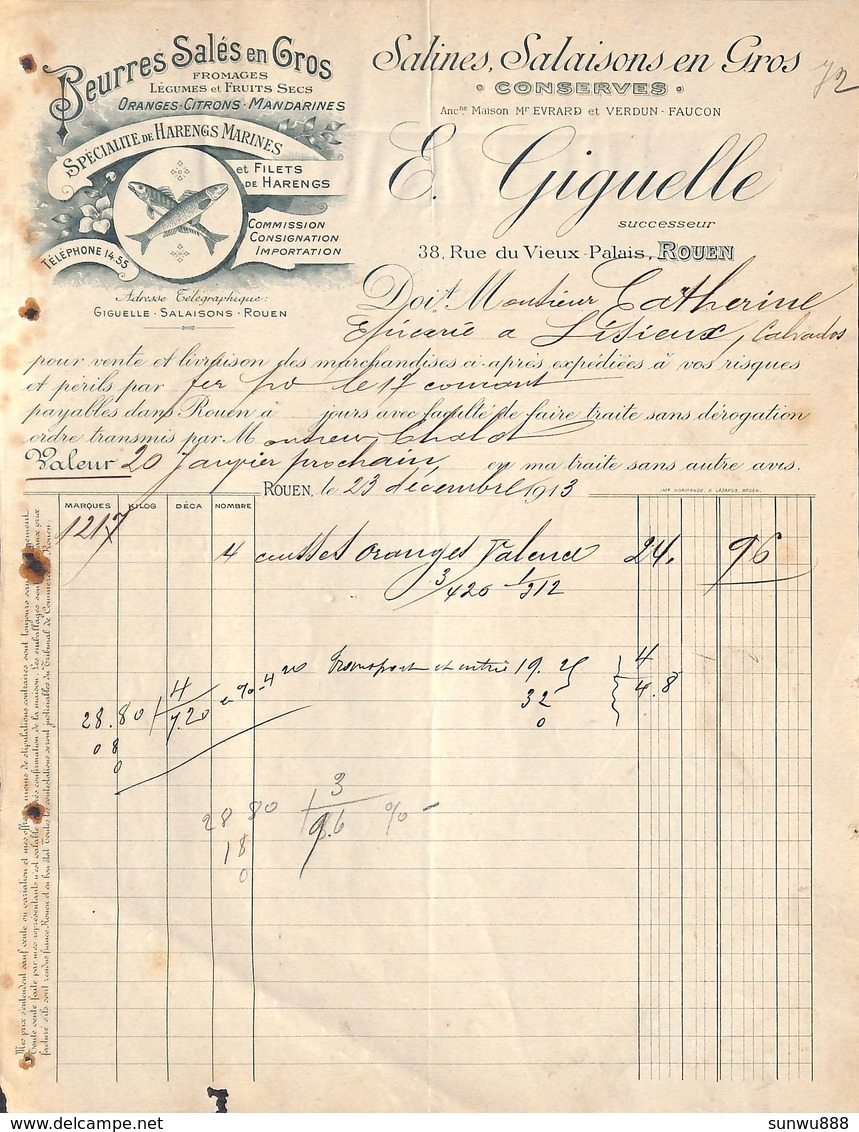 Beurres Salés en Gros
FROMAGES
LÉGUMES ET FRUITS SECS
ORANGES · CITRONS · MANDARINES
SPÉCIALITÉ DE HARENGS MARINES
ET FILETS
DE HARENGS
COMMISSION
CONSIGNATION
IMPORTATION
TÉLÉPHONE 14.55
Adresse Télégraphique :
GIGUELLE · SALAISONS · ROUEN
Salines, Salaisons en Gros
CONSERVES
72
Anc.ne Maison Mr EVRARD et VERDUN-FAUCON
E. Giguelle
successeur
38, Rue du Vieux-Palais, ROUEN
Doit Monsieur Catherine
Epicerie a Lisieux, Calvados
pour vente et livraison des marchandises ci-après expédiées à vos risques
et périls par fer le 17 courant
payables dans Rouen à jours avec faculté de faire traite sans dérogation
ordre transmis par Monsieur Chalot
Valeur 20 janvier prochain en ma traite sans autre avis.
ROUEN, le 23 décembre 1913
IMP. NORMANDE, A. LAZARUS, ROUEN.
MARQUES KILOG DÉCA NOMBRE
1217
4 oranges Valence 24. 96
3/420 1/312
Transport et 19.2 4
32 4.8
0
28.80 4
08 7.20
0
28 80 3
18 9.6 %
0
Mes prix s'entendent sauf vente ou variation et mes offres moins de stipulations contraires sont toujours sans engagement
Toute vente faite par mes représentants n'est valable qu'après confirmation de la maison. Les emballages sont aux prix
facturés, ils sont rendus franco Rouen et en bon état. Toutes les contestations seront justiciables du Tribunal de Commerce de Rouen.
sunwu888